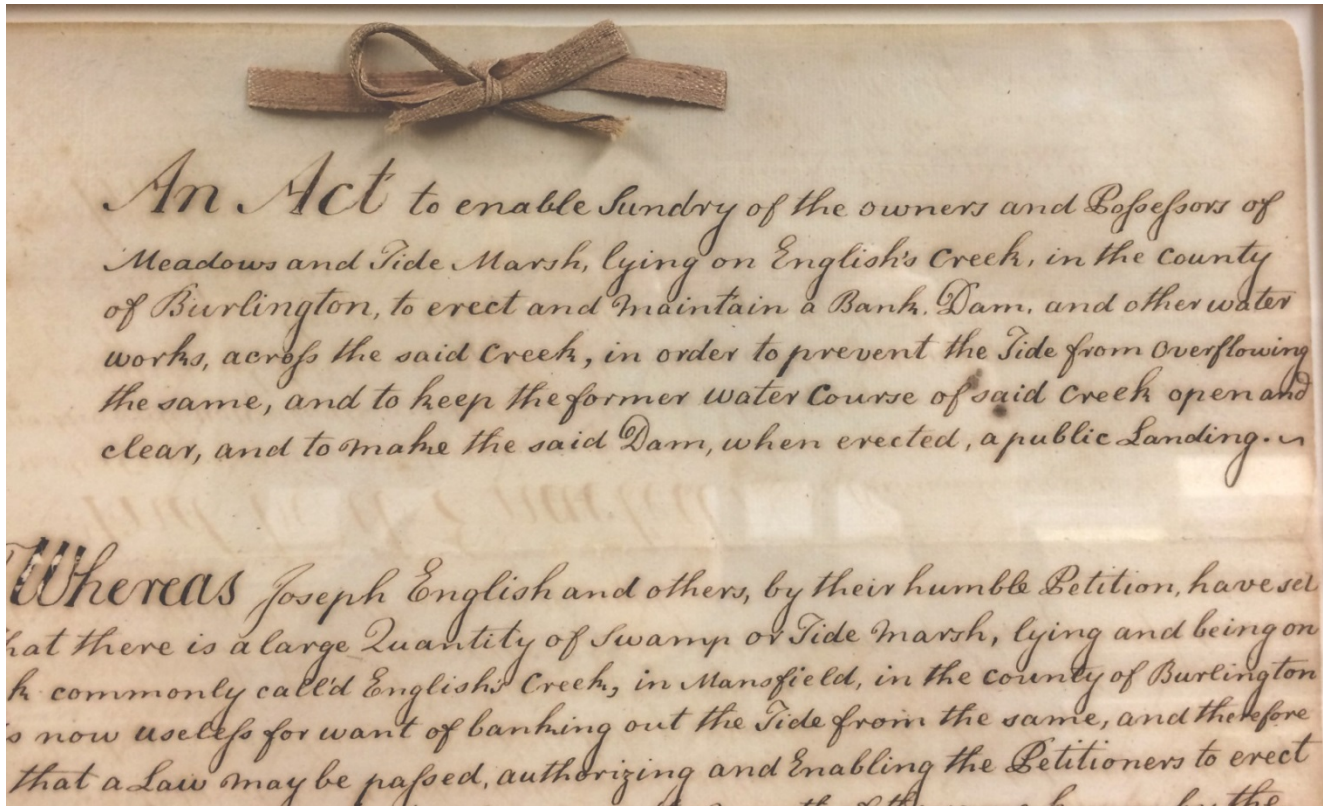 An Act to enable Sundry of the owners and Poſseſsors of
Meadows and Tide Marsh, lying on English's Creek, in the county
of Burlington, to erect and maintain a Bank, Dam, and other water
works, acroſs the said Creek, in order to prevent the Tide from overflowing
the same, and to keep the former water Course of said Creek open and
clear, and to make the said Dam, when erected, a public Landing.
Whereas Joseph English and others, by their humble Petition, have set
hat there is a large Quantity of Swamp or Tide Marsh, lying and being on
k commonly call'd English's Creek, in Mansfield, in the county of Burlington
s now useleſs for want of banking out the Tide from the same, and therefore
that a Law may be paſsed, authorizing and Enabling the Petitioners to erect